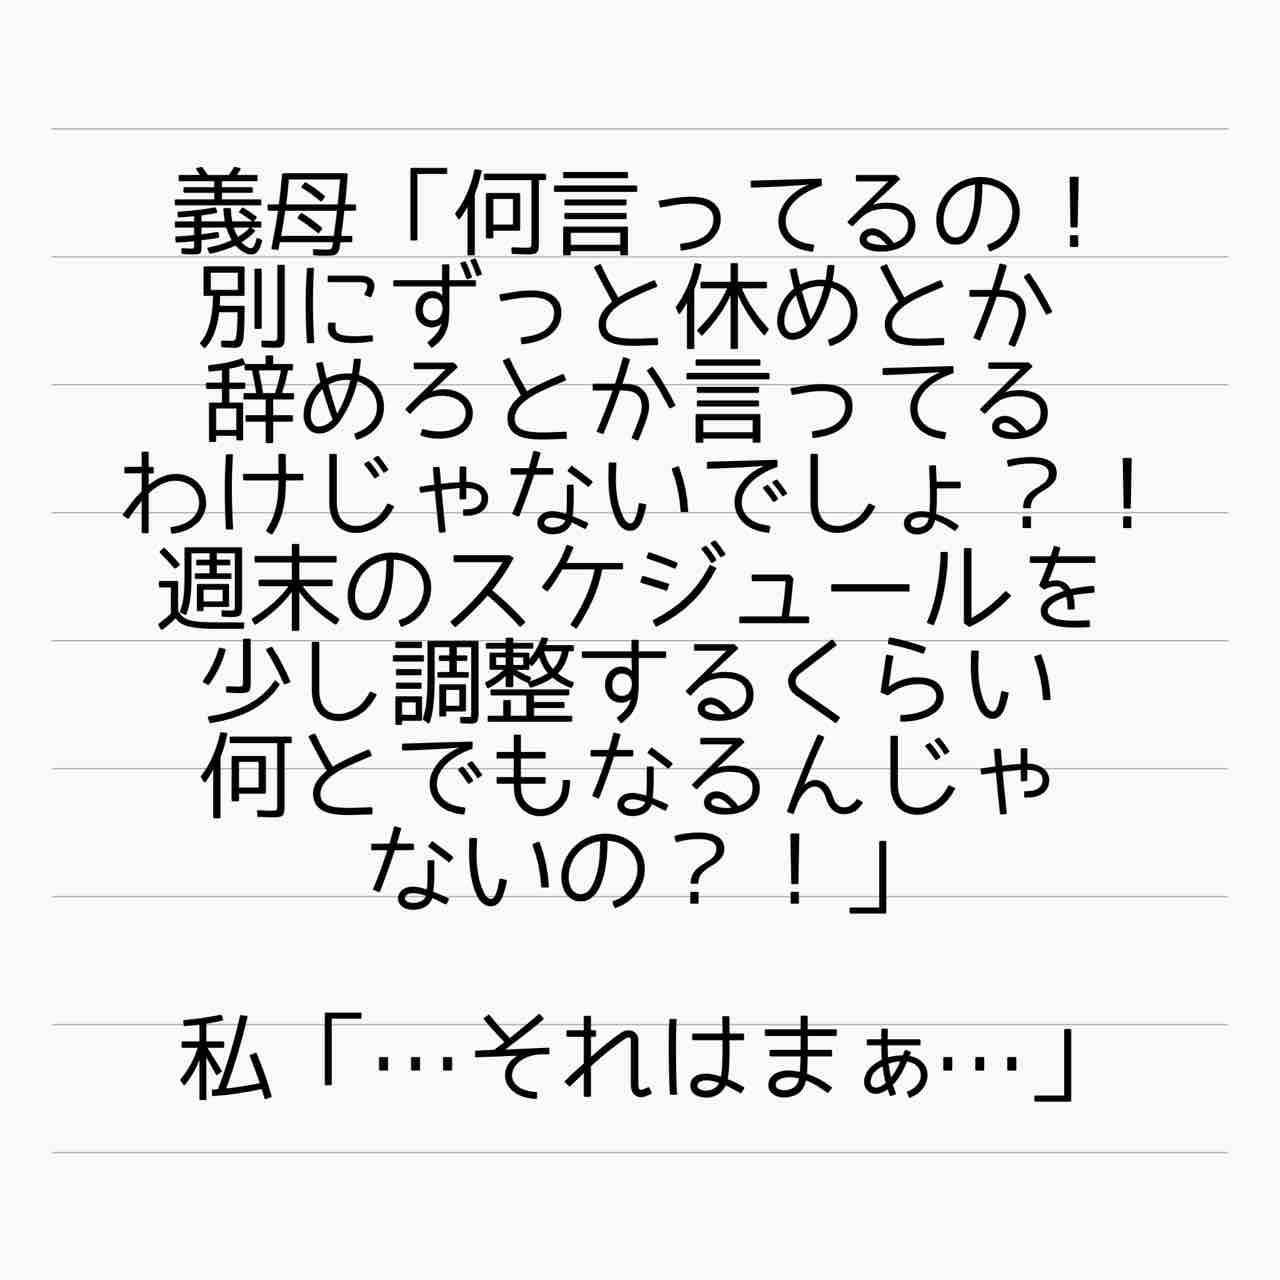 義母「何言ってるの！
別にずっと休めとか
辞めろとか言ってる
わけじゃないでしょ？！
週末のスケジュールを
少し調整するくらい
何とでもなるんじゃ
ないの？！」
私「…それはまぁ…」